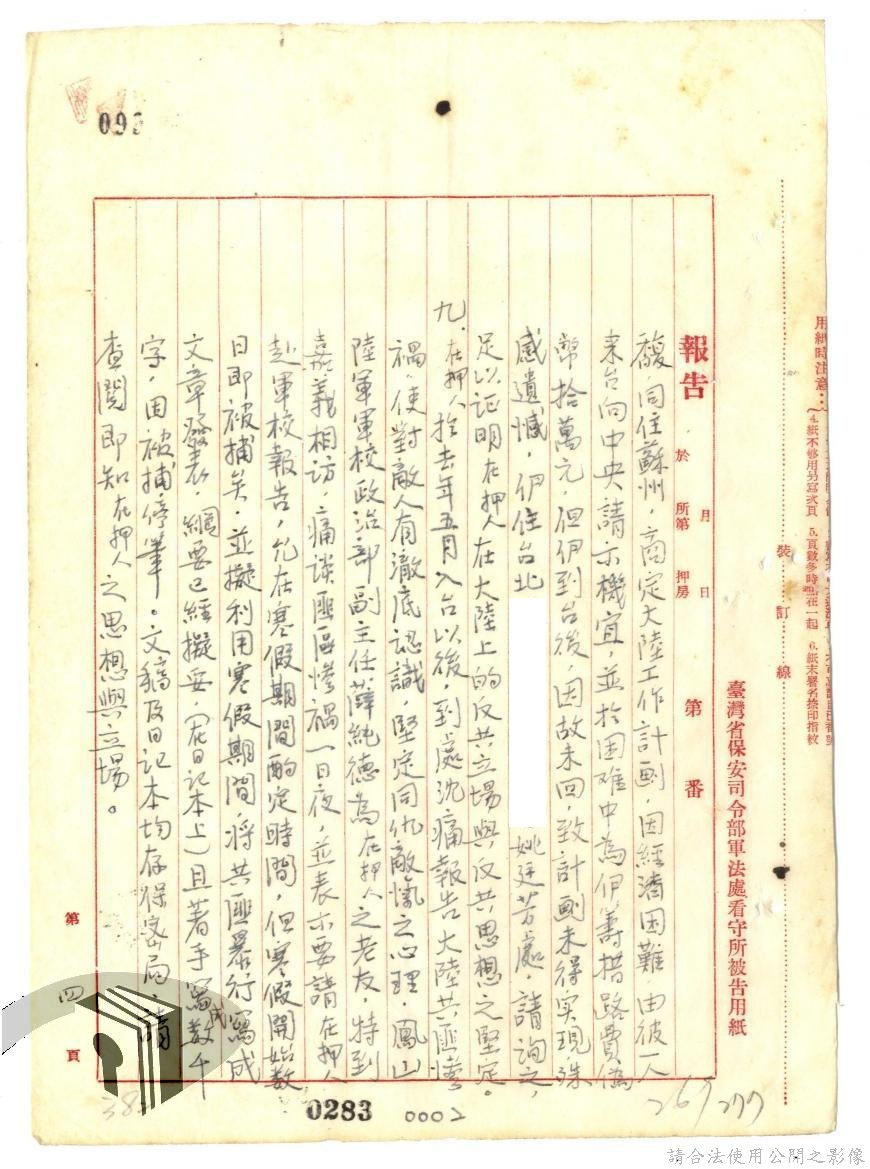 用紙時注意：
4.紙不够用另寫次頁 5.頁數多時訂在一起 6.紙末署名捺印指紋
裝訂線
臺灣省保安司令部軍法處看守所被告用紙
報告 於 月 日 所第 押房 第 番
馥同住蘇州，商定大陸工作計劃，因經濟困難由彼一人
來台向中央請示機宜，並於困难中為伊籌措路費偽
幣拾萬元，但伊到台後，因故未回，致計劃未得实現，殊
感遺憾，伊住台北 姚廷芳處，請詢之，
足以证明在押人在大陸上的反共立場與反共思想之堅定。
九．在押人於去年五月入台以後，到處沈痛報告大陸共匪慘
禍，使對敵人有澈底認識，堅定同仇敵愾之心理，鳳山
陸軍軍校政治部副主任薛純德為在押人之老友，特到
嘉義相訪，痛談匪區慘禍一日夜，並表示要請在押人
赴軍校報告，允在寒假期間酌定時間，但寒假開始数
日即被捕矣，並擬利用寒假期間，將共匪暴行寫成
文章發表，綱要已經擬妥，（在日記本上）且著手寫成数千
字，因被捕停筆。文稿及日記本均存保密局，請
查閱即知在押人之思想與立場。
第四頁
0283
0002
267
277
請合法使用公開之影像